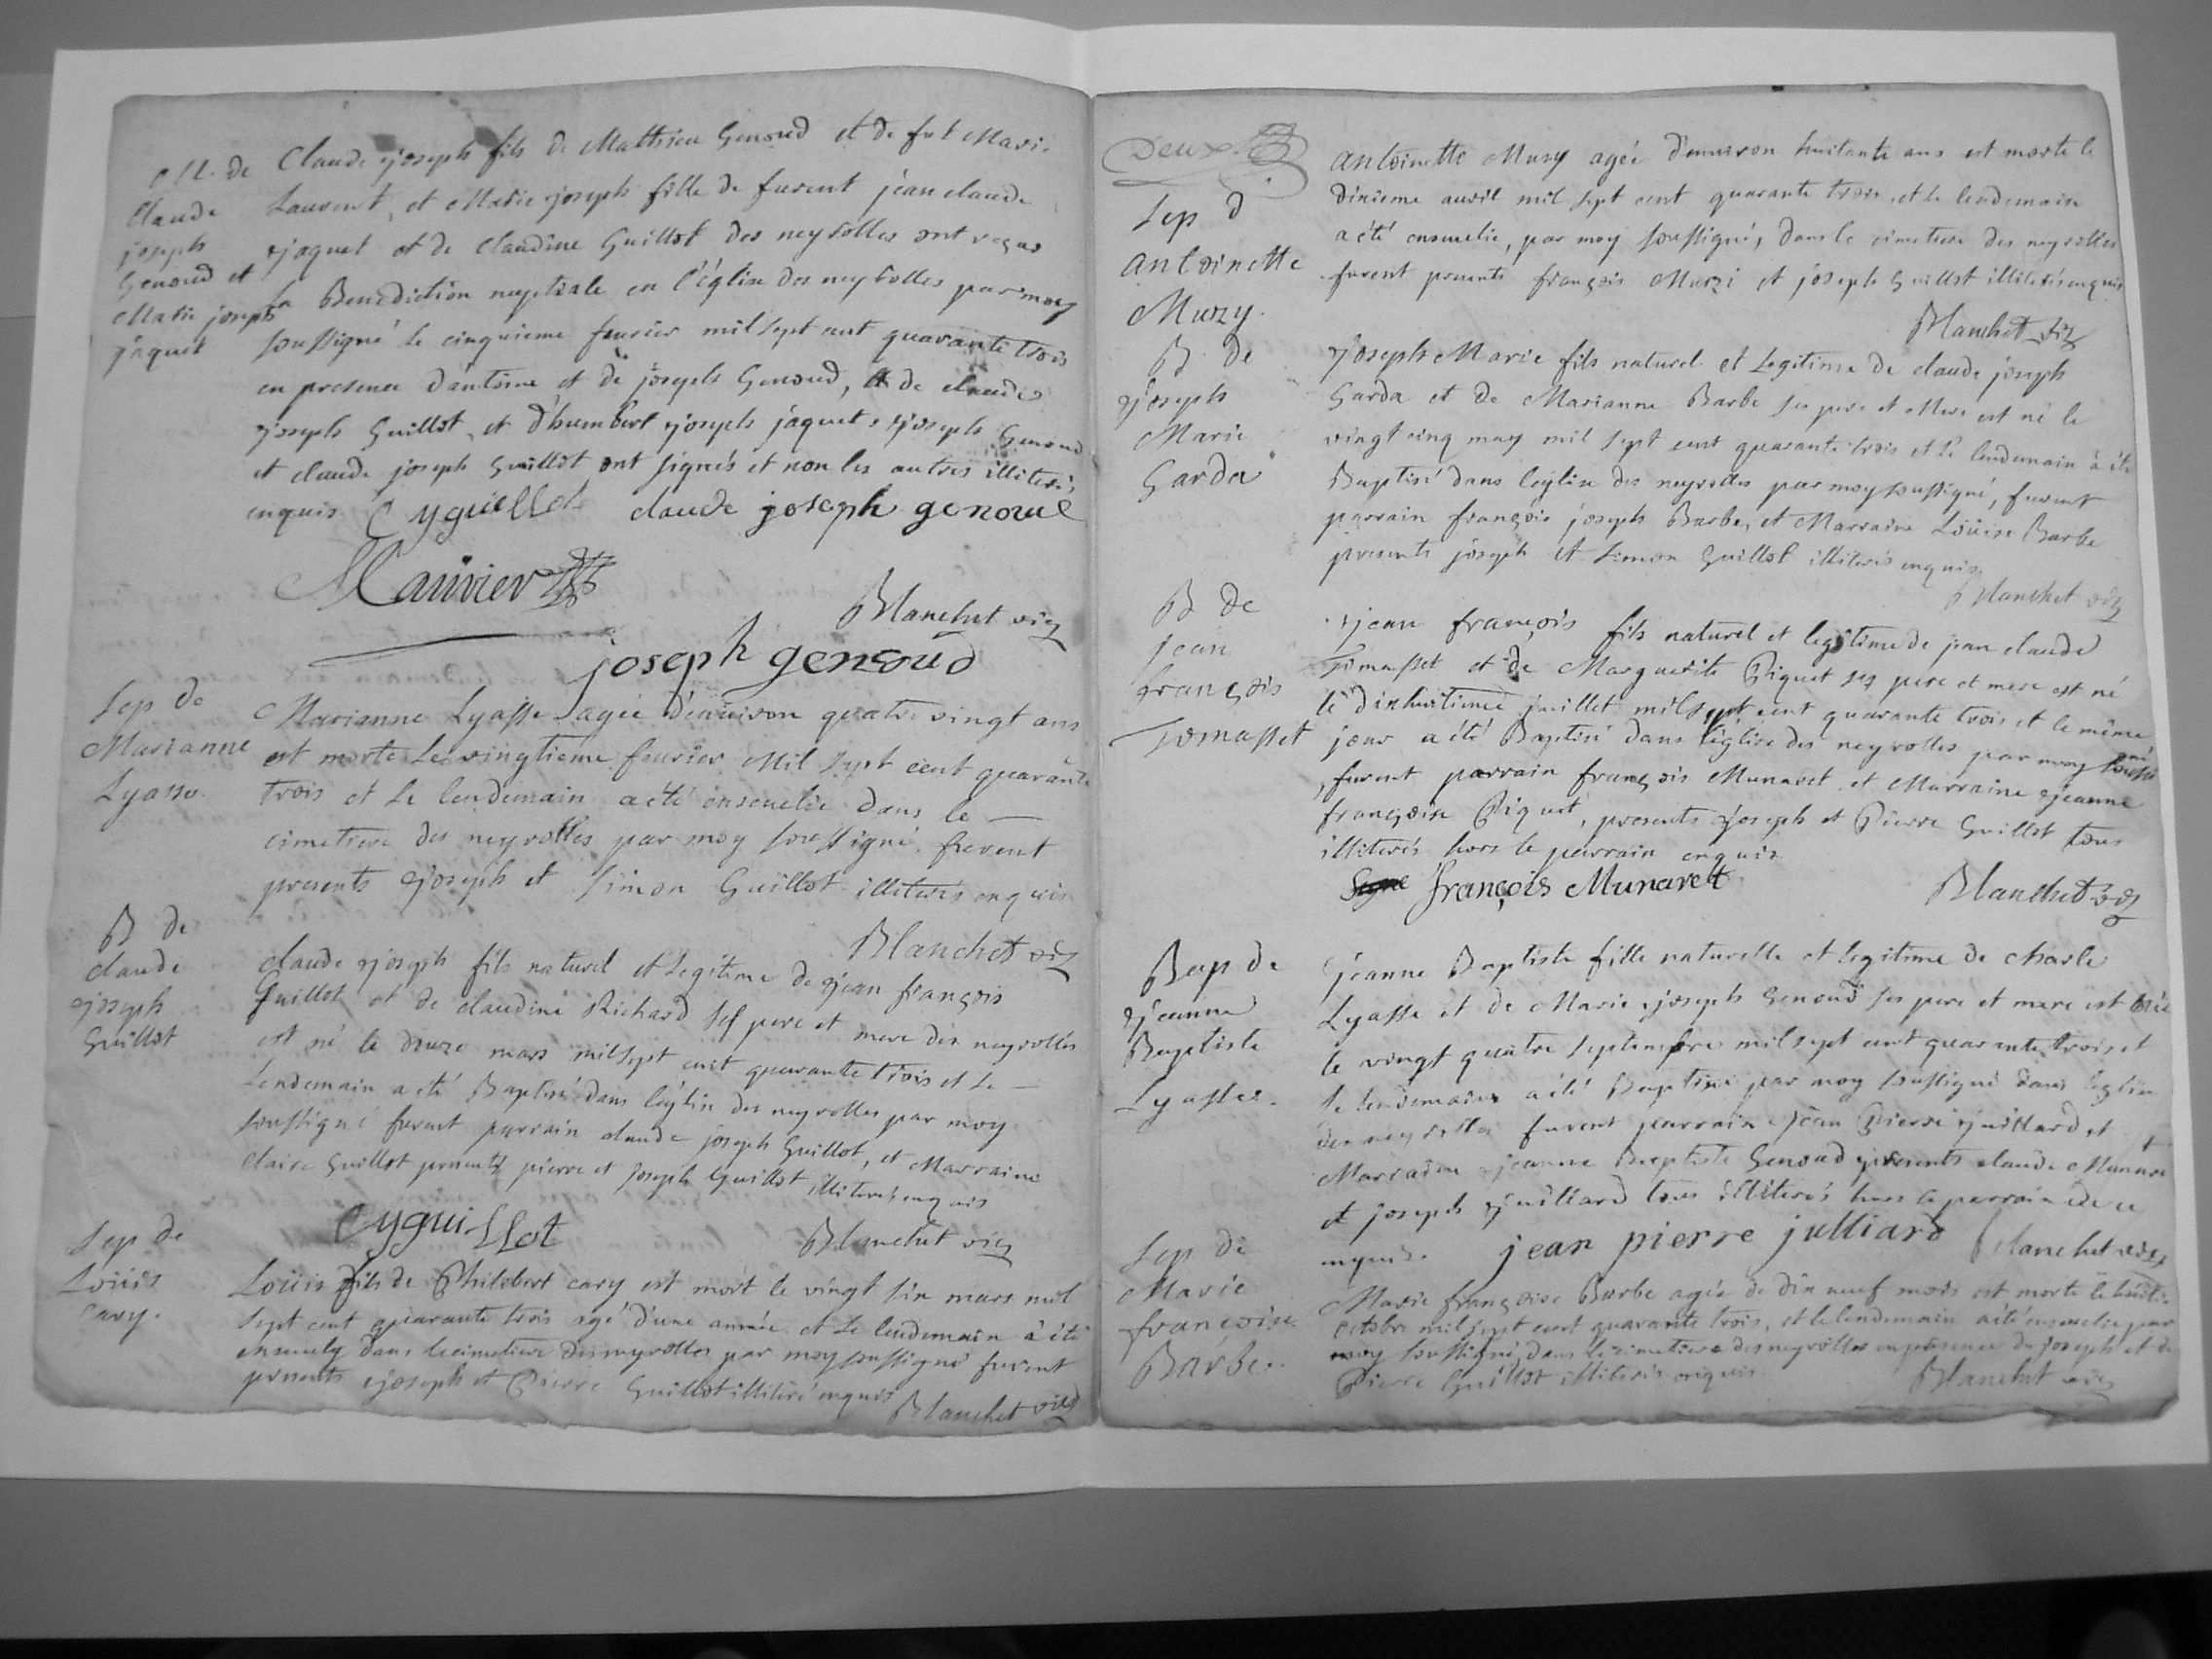 M. de
Claude
joseph
Genoud et
Marie joseph
jaquet
Claude joseph fils de Mathieu Genoud et de fut Marie
Laurent, et Marie joseph fille de furent jean claude
jaquet et de Claudine Guillot des neyrolles ont reçus
la Benediction nuptiale en l'église des neyrolles par moy
soussigné le cinquieme feurier mil sept cent quarante trois
en presence d'antoine et de joseph Genoud, et de claude
joseph Guillot, et d'humbert joseph jaquet, joseph Genoud
et claude joseph Guillot ont signés et non les autres illiterés
enquis Cyguillot claude joseph genoud
Mauvier
Blanchet vic
joseph genoud
Sep de
Marianne
Lyasse.
Marianne Lyasse agée d'enuiron quatre vingt ans
est morte le vingtieme feurier Mil sept cent quarante
trois et le lendemain a été enseuelie dans le
cimetiere des neyrolles par moy soussigné furent
presents joseph et simon Guillot illiterés enquis
Blanchet vic
B de
claude
joseph
Guillot
claude joseph fils naturel et legitime de jean françois
Guillot et de claudine Richard ses pere et mere des neyrolles
est né le douze mars mil sept cent quarante trois et le
lendemain a été Baptisé dans l'église des neyrolles par moy
soussigné furent parrain claude joseph Guillot, et Marraine
claire Guillot presents pierre et joseph Guillot illiterés enquis
Cyguillot
Blanchet vic
Sep de
Loüis
Cary.
Loüis fils de Philibert cary est mort le vingt six mars mil
sept cent quarante trois agé d'une année et le lendemain à été
enseuely dans le cimetiere des neyrolles par moy soussigné furent
presents joseph et Pierre Guillot illiteré enquis
Blanchet vic
Deux
Sep d
antoinette
Muzy.
antoinette Muzy agée d'enuiron huitante ans est morte le
dixieme auril mil sept cent quarante trois, et le lendemain
a été enseuelie, par moy soussigné, dans le cimetiere des neyrolles
furent presents françois Murzi et joseph Guillot illiterés enquis
Blanchet vic
B de
joseph
Marie
Garda
joseph Marie fils naturel et Legitime de claude joseph
Garda et de Marianne Barbe ses pere et Mere est né le
vingt cinq may mil sept cent quarante trois et le lendemain à été
Baptisé dans l'eglise des neyrolles par moy soussigné, furent
parrain françois joseph Barbe, et Marraine Loüise Barbe
presents joseph et simon Guillot illiterés enquis
Blanchet vic
B de
jean
françois
Tomasset
jean françois fils naturel et legitime de jean claude
Tomasset et de Marguerite Piquet ses pere et mere est né
le dixhuitieme juillet mil sept cent quarante trois et le même
jour a été Baptisé dans l'église des neyrolles par moy soussigné
, furent parrain françois Munaret et Marraine jeanne
françoise Piquet, presents joseph et Pierre Guillot tous
illiterés hors le parrain enquis
Signe françois Munaret
Blanchet vic
Bap de
jeanne
Baptiste
Lyasse.
jeanne Baptiste fille naturelle et legitime de charle
Lyasse et de Marie joseph Genoud ses pere et mere est née
le vingt quatre septembre mil sept cent quarante trois et
le lendemain a été Baptisée par moy soussigné dans l'eglise
des neyrolles furent parrain jean Pierre juillard et
Marraine jeanne Baptiste Genoud presents claude Munare
et joseph juilliard tous illiterés hors le parrain de ce
enquis. jean pierre julliard Blanchet vic
Sep de
Marie
françoise
Barbe.
Marie françoise Barbe agée de dix neuf mois est morte le huitie
octobre mil sept cent quarante trois, et le lendemain a été enseuelie par
moy soussigné, dans le cimetiere des neyrolles en presence de joseph et de
Pierre Guillot illiterés enquis
Blanchet vic